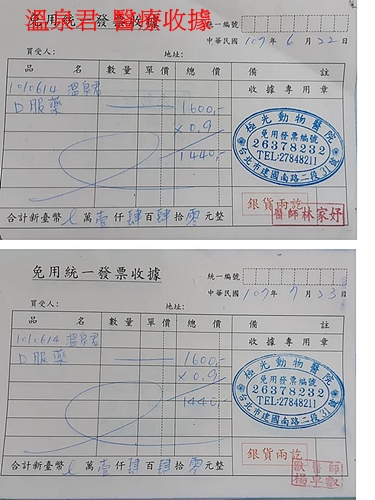 溫泉君 醫療收據
免用統一發票收據
統一編號
中華民國 107 年 6 月 22 日
買受人: 地址:
品名 數量 單價 總價 備註
1010614 溫泉君 收據專用章
口服藥 1600,-
x 0.9
1440,-
極光動物醫院
免用發票編號
26378232
TEL:27848211
台北市建國南路二段31號
銀貨兩訖
醫師林家妤
合計新臺幣 萬壹仟肆百肆拾零元整
免用統一發票收據
統一編號
中華民國 107 年 7 月 23 日
買受人: 地址:
品名 數量 單價 總價 備註
1010614 溫泉君 收據專用章
口服藥 1600,-
x 0.9
1440,-
極光動物醫院
免用發票編號
26378232
TEL:27848211
台北市建國南路二段31號
銀貨兩訖
獸醫師
合計新臺幣 萬壹仟肆百肆拾零元整